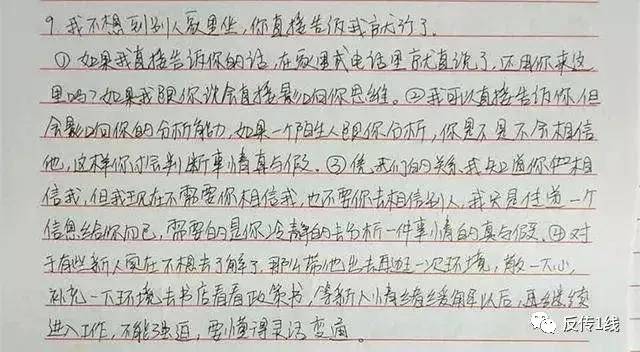 9. 我不想到别人家里坐,你直接告诉我就行了。
① 如果我直接告诉你的话,在家里或电话里就直说了,还用你来这
里吗?如果我跟你说会直接影响你思维。②我可以直接告诉你,但
会影响你的分析能力,如果一个陌生人跟你分析,你是不是不会相信
他,这样你才会判断事情真与假。③ 凭我们的关系,我知道你也相
信我,但我现在不需要你相信我,也不要你去相信别人,我只是传递一个
信息给你而已,需要的是你冷静的去分析一件事情的真与假。④对
于有些新人实在不想去了解了,那么带他出去再逛一次环境,散一下心,
补充一下环境去书店看看政策书,等新人情绪缓解以后,再继续
进入工作,不能强逼,要懂得灵活变通。
反传1线